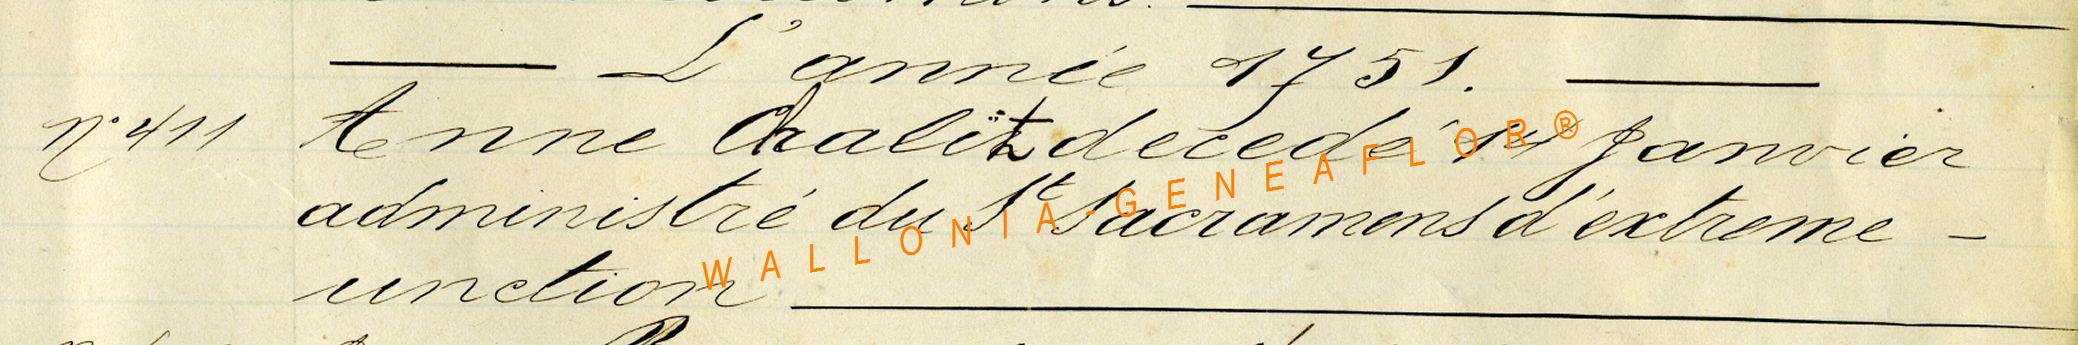 L'année 1751.
N° 411 Anne décedé 1er Janvier
administré du St Sacramens d'extreme -
unction
WALLONIA-GENEAFLOR®